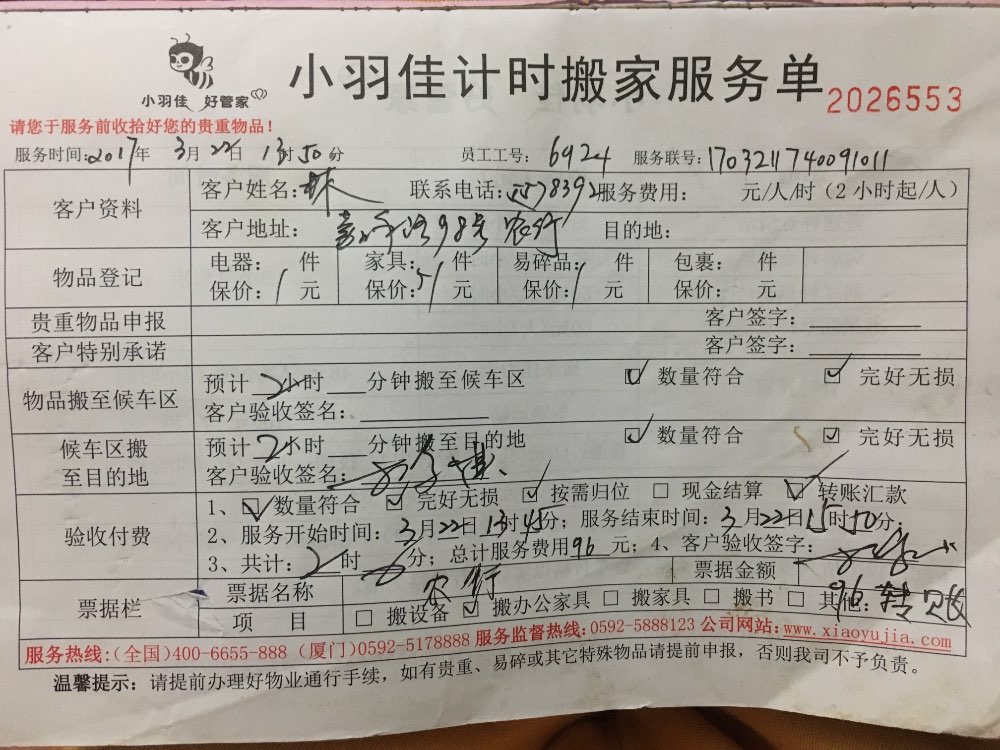 小羽佳 好管家
小羽佳计时搬家服务单
2026553
请您于服务前收拾好您的贵重物品！
服务时间：2017年 3月 22日 13时 50分 员工工号：6924 服务联号：1703211740091011
客户资料 客户姓名：林 联系电话： 服务费用： 元/人/时（2小时起/人）
客户地址： 98号 农行 目的地：
物品登记 电器： 件 家具： 件 易碎品： 件 包裹： 件
保价： 元 保价： 元 保价： 元 保价： 元
贵重物品申报 客户签字：
客户特别承诺 客户签字：
物品搬至候车区 预计 2小时 分钟搬至候车区 ☑ 数量符合 ☑ 完好无损
客户验收签名：
候车区搬至目的地 预计 2小时 分钟搬至目的地 ☑ 数量符合 ☑ 完好无损
客户验收签名：
验收付费 1、☑ 数量符合 ☑ 完好无损 ☑ 按需归位 □ 现金结算 ☑ 转账汇款
2、服务开始时间：3月22日13时45分；服务结束时间：3月22日15时50分；
3、共计：2时 分；总计服务费用96元；4、客户验收签字：
票据栏 票据名称 农行 票据金额 96 转账
项 目 □ 搬设备 ☑ 搬办公家具 □ 搬家具 □ 搬书 □ 其他：
服务热线：(全国)400-6655-888 (厦门)0592-5178888 服务监督热线：0592-5888123 公司网站：www.xiaoyujia.com
温馨提示：请提前办理好物业通行手续，如有贵重、易碎或其它特殊物品请提前申报，否则我司不予负责。